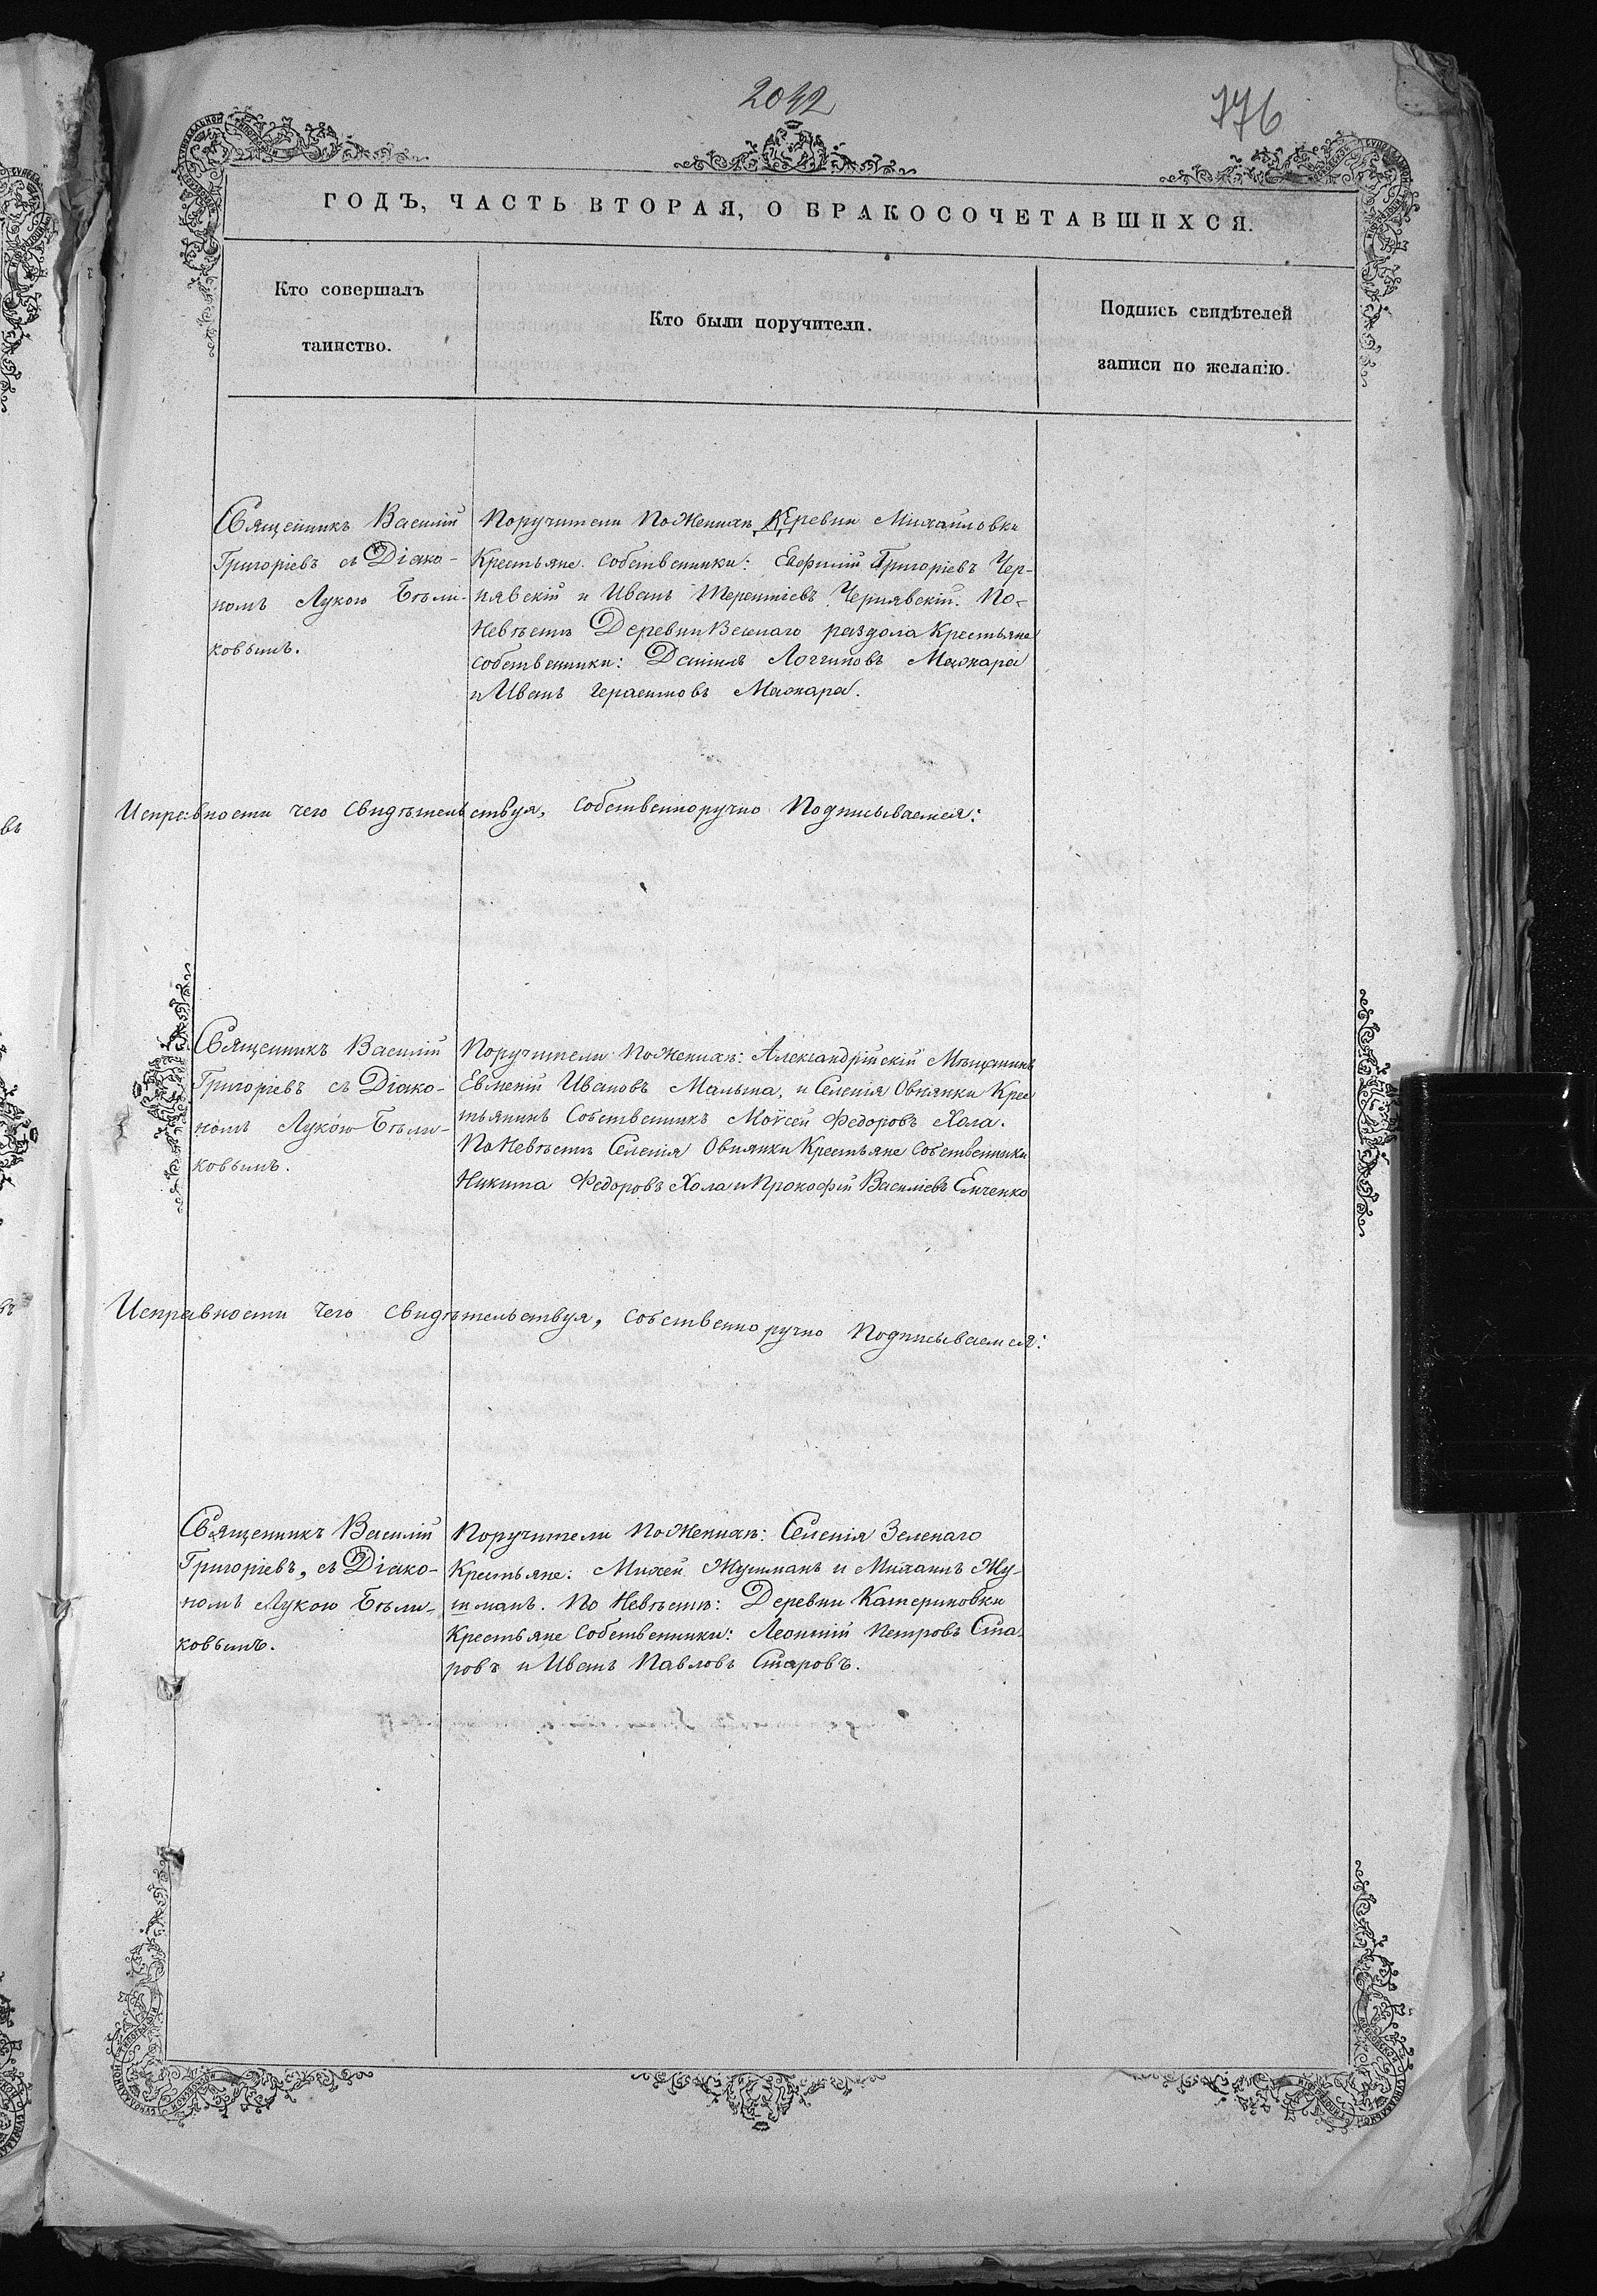 2042
776
ГОДЪ, ЧАСТЬ ВТОРАЯ, О БРАКОСОЧЕТАВШИХСЯ.
Кто совершалъ
таинство.
Кто были поручители.
Подпись свидѣтелей
записи по желанію.
Священникъ Василій
Григоріевъ съ Діако-
номъ Лукою Бѣли-
ковымъ.
Поручители по Женихѣ Деревни Михайловки
Крестьяне собственники: Евфимій Григоріевъ Чер-
нявскій и Иванъ Терентіевъ Чернявскій. По-
Невѣстѣ Деревни раздола Крестьяне
собственники: Даніилъ Логгиновъ Мажара
и Иванъ Герасимовъ Мажара.
Исправности чего свидѣтельствуя, собственноручно Подписываемся:
Священникъ Василій
Григоріевъ съ Діако-
номъ Лукою Бѣли-
ковымъ.
Поручители по Женихѣ: Александрійскій Мѣщанинъ
Евмений Ивановъ Малыта, и Селенія Овнянки Крес
тьянинъ Собственникъ Моѵсей Федоровъ Хала.
По Невѣстѣ Селенія Овнянки Крестьяне Собственники
Никита Федоровъ Хала и Прокофій Василіевъ Енченко
Исправности чего свидѣтельствуя, собственно ручно Подписываемся:
Священникъ Василій
Григоріевъ, съ Діако-
номъ Лукою Бѣли-
ковымъ.
Поручители по Женихѣ: Селенія Зеленаго
Крестьяне: Михей Жушманъ и Михаилъ Жу-
шманъ. По Невѣстѣ: Деревни Катериновки
Крестьяне Собственники: Леонтій Петровъ Ста-
ровъ и Иванъ Павловъ Старовъ.